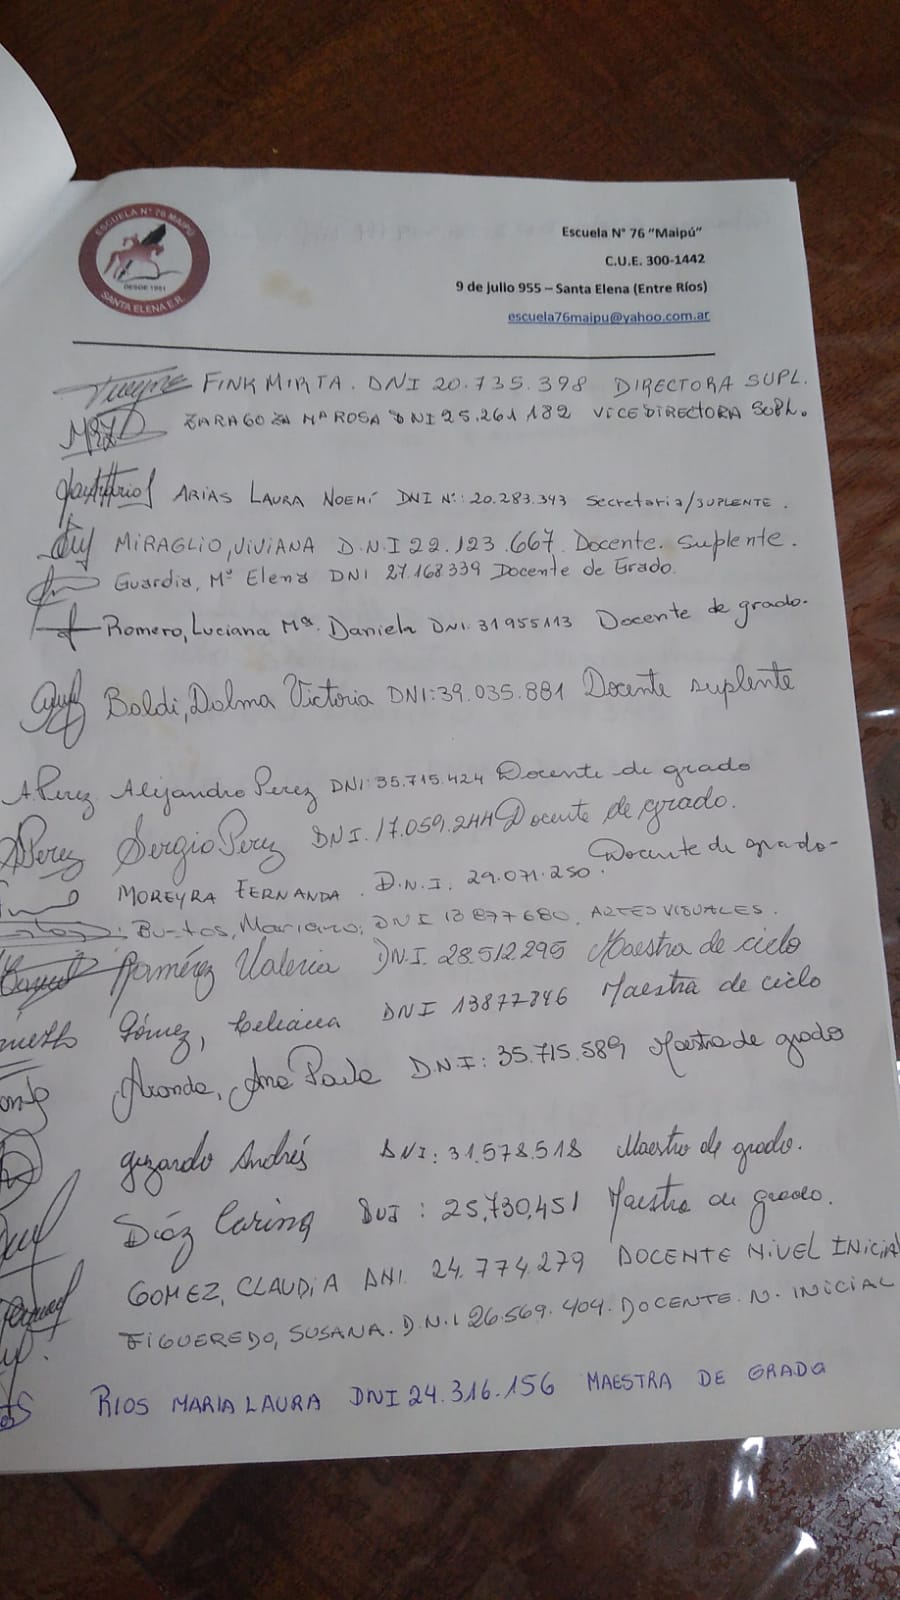 ESCUELA N° 76 MAIPÚ
DESDE 1951
SANTA ELENA E.R.
Escuela N° 76 "Maipú"
C.U.E. 300-1442
9 de Julio 955 – Santa Elena (Entre Ríos)
escuela76maipu@yahoo.com.ar
FINK MIRTA. DNI 20.735.398 DIRECTORA SUPL.
ZARAGOZA Mª ROSA DNI 25.261.182 VICEDIRECTORA SUPL.
ARIAS LAURA NOEMÍ DNI N°: 20.283.343 Secretaria/SUPLENTE.
MIRAGLIO, VIVIANA D.N.I 22.123.667. Docente. Suplente.
Guardia, Mª Elena DNI 27.168.339 Docente de Grado.
Romero, Luciana Mª. Daniela DNI. 31955113 Docente de grado.
Baldi, Dalma Victoria DNI: 39.035.881 Docente suplente
A.Perez Alejandro Perez DNI: 35.715.424 Docente de grado
Perez Sergio Perez DNI. 17.059.244 Docente de grado.
MOREYRA FERNANDA. D.N.I. 29.071.250. Docente de grado-
Bustos, Mariano, DNI 13877680. ARTES VISUALES.
Ramírez Valeria DN.I. 28.512.295 Maestra de ciclo
Gómez, DNI 13877846 Maestra de ciclo
Aranda, Ana Paula D.N.I: 35.715.589 Maestra de grado
Andrés DNI: 31.578.518 Maestro de grado.
Díaz Carina DNI: 25,730,451 Maestra de grado.
GOMEZ, CLAUDIA DNI. 24.774.279 DOCENTE NIVEL INICIAL
FIGUEREDO, SUSANA. D.N.I 26.569.404. DOCENTE. N. INICIAL
RIOS MARIA LAURA DNI 24.316.156 MAESTRA DE GRADO